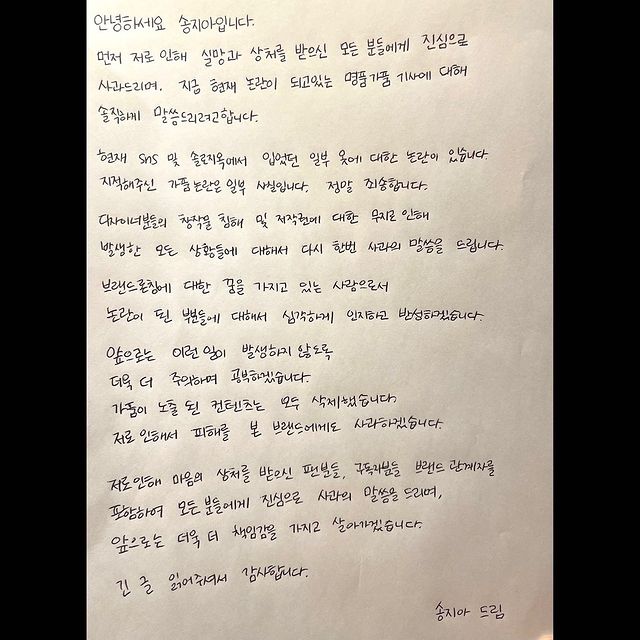 안녕하세요 송지아입니다.
먼저 저로 인해 실망과 상처를 받으신 모든 분들에게 진심으로
사과드리며. 지금 현재 논란이 되고있는 명품가품 기사에 대해
솔직하게 말씀드리려고합니다.
현재 SNS 및 솔로지옥에서 입었던 일부 옷에 대한 논란이 있습니다.
지적해주신 가품논란은 일부 사실입니다. 정말 죄송합니다.
디자이너분들의 창작물 침해 및 저작권에 대한 무지로 인해
발생한 모든 상황들에 대해서 다시 한번 사과의 말씀을 드립니다.
브랜드론칭에 대한 꿈을 가지고 있는 사람으로서
논란이 된 부분들에 대해서 심각하게 인지하고 반성하겠습니다.
앞으로는 이런 일이 발생하지 않도록
더욱 더 주의하며 공부하겠습니다.
가품이 노출 된 컨텐츠는 모두 삭제했습니다.
저로 인해서 피해를 본 브랜드에게도 사과하겠습니다.
저로인해 마음의 상처를 받으신 팬분들, 구독자분들 브랜드 관계자를
포함하여 모든 분들에게 진심으로 사과의 말씀을 드리며,
앞으로는 더욱 더 책임감을 가지고 살아가겠습니다.
긴 글 읽어주셔서 감사합니다.
송지아 드림